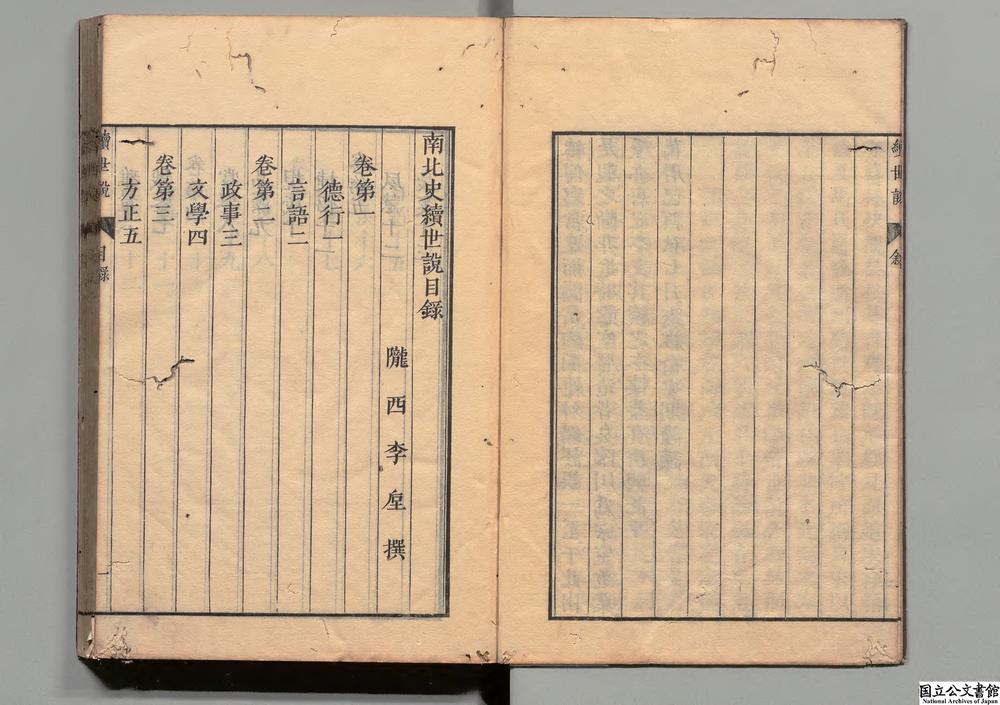 續世說
敘
南北史續世說目錄
隴西李垕撰
卷第一
德行一
言語二
卷第二
政事三
文學四
卷第三
方正五
續世說
目錄
国立公文書館
National Archives of Japan